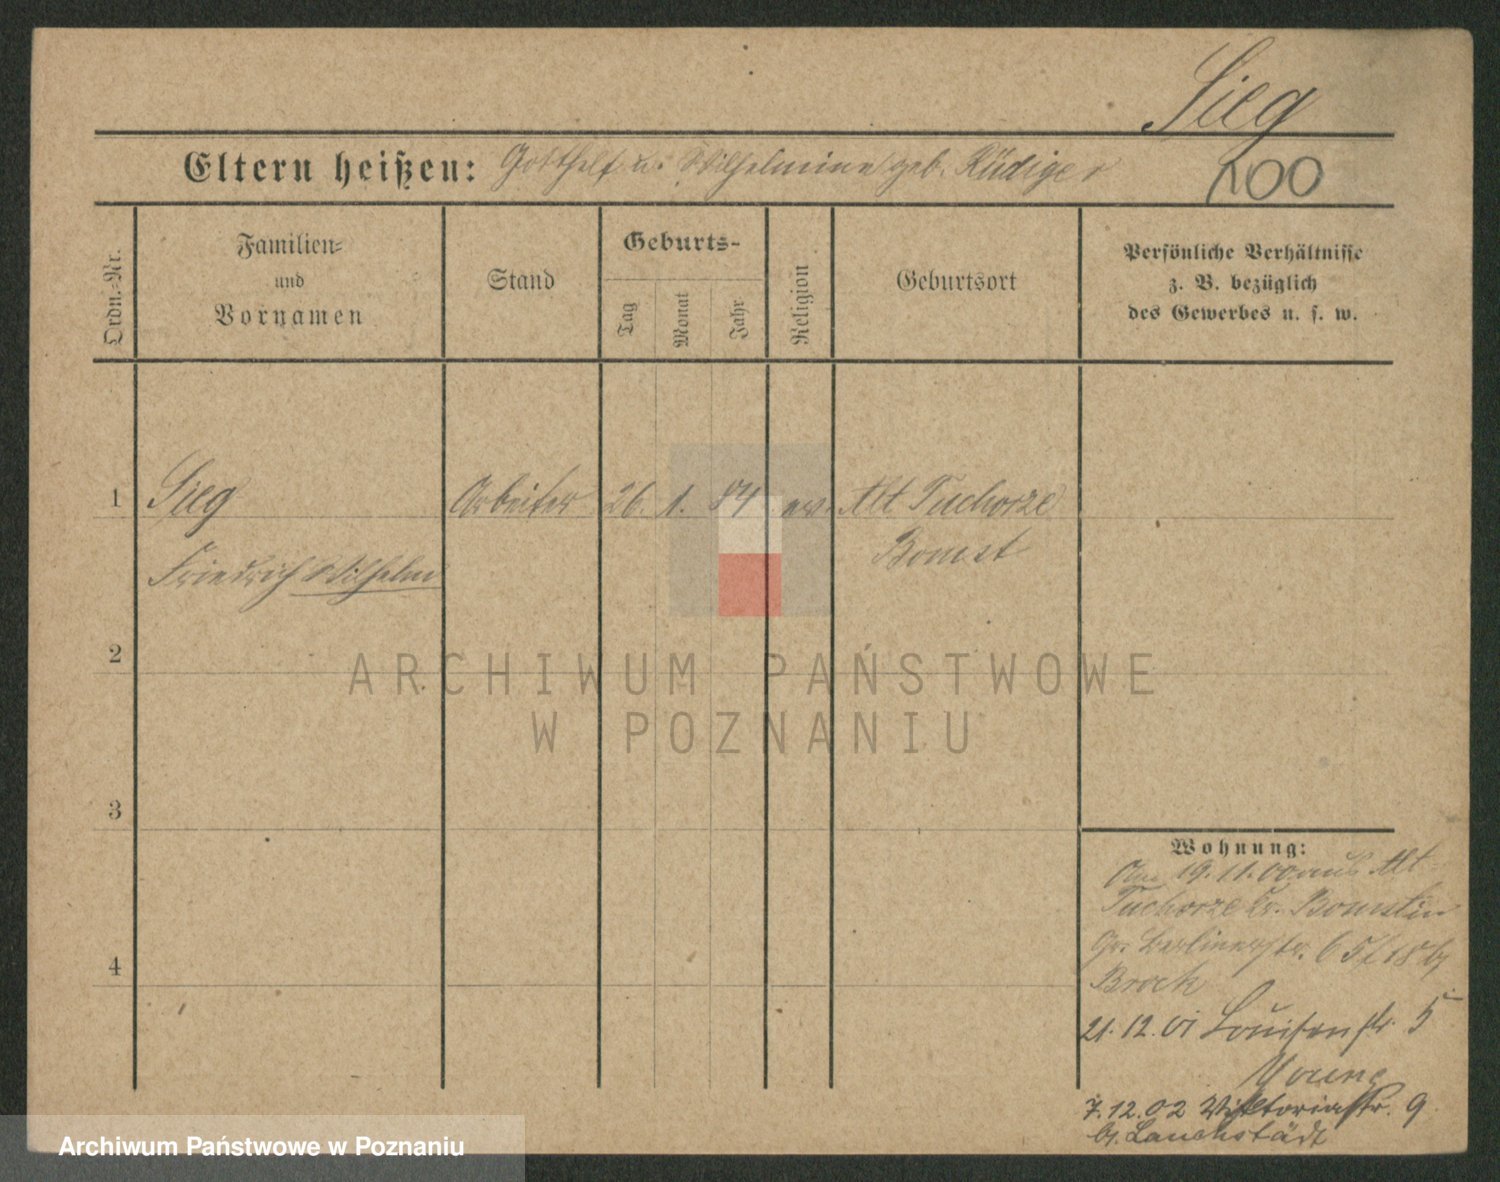 Sieg
Eltern heißen: Gotthelf u. Wilhelmine geb. Rüdiger
100
Ordn.-Nr.
Familien-
und
Vornamen
Stand
Geburts-
Tag
Monat
Jahr
Religion
Geburtsort
Persönliche Verhältnisse
z. B. bezüglich
des Gewerbes u. s. w.
1 Sieg Arbeiter 26. 1. 84 ev. Alt Tuchorze
Bomst
Friedrich Wilhelm
2
ARCHIWUM PAŃSTWOWE
W POZNANIU
3
Wohnung:
Am 19.11.00 aus Alt
Tuchorze Kr. Bomst in
Gr. Berlinerstr. 65/18 bj
Brock
4
21.12.01 Louisenstr. 5
7.12.02 Viktoriastr. 9
bj. Lauchstädt
Archiwum Państwowe w Poznaniu